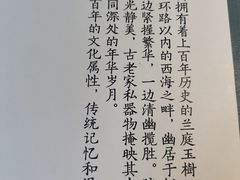 拥有着上百年历史的兰庭玉樹
环路以内的西海之畔，幽居于
边紧握繁华，一边清幽揽胜。
光静美，古老家私器物掩映其
同深处的年华岁月。
百年的文化属性，传统记忆和